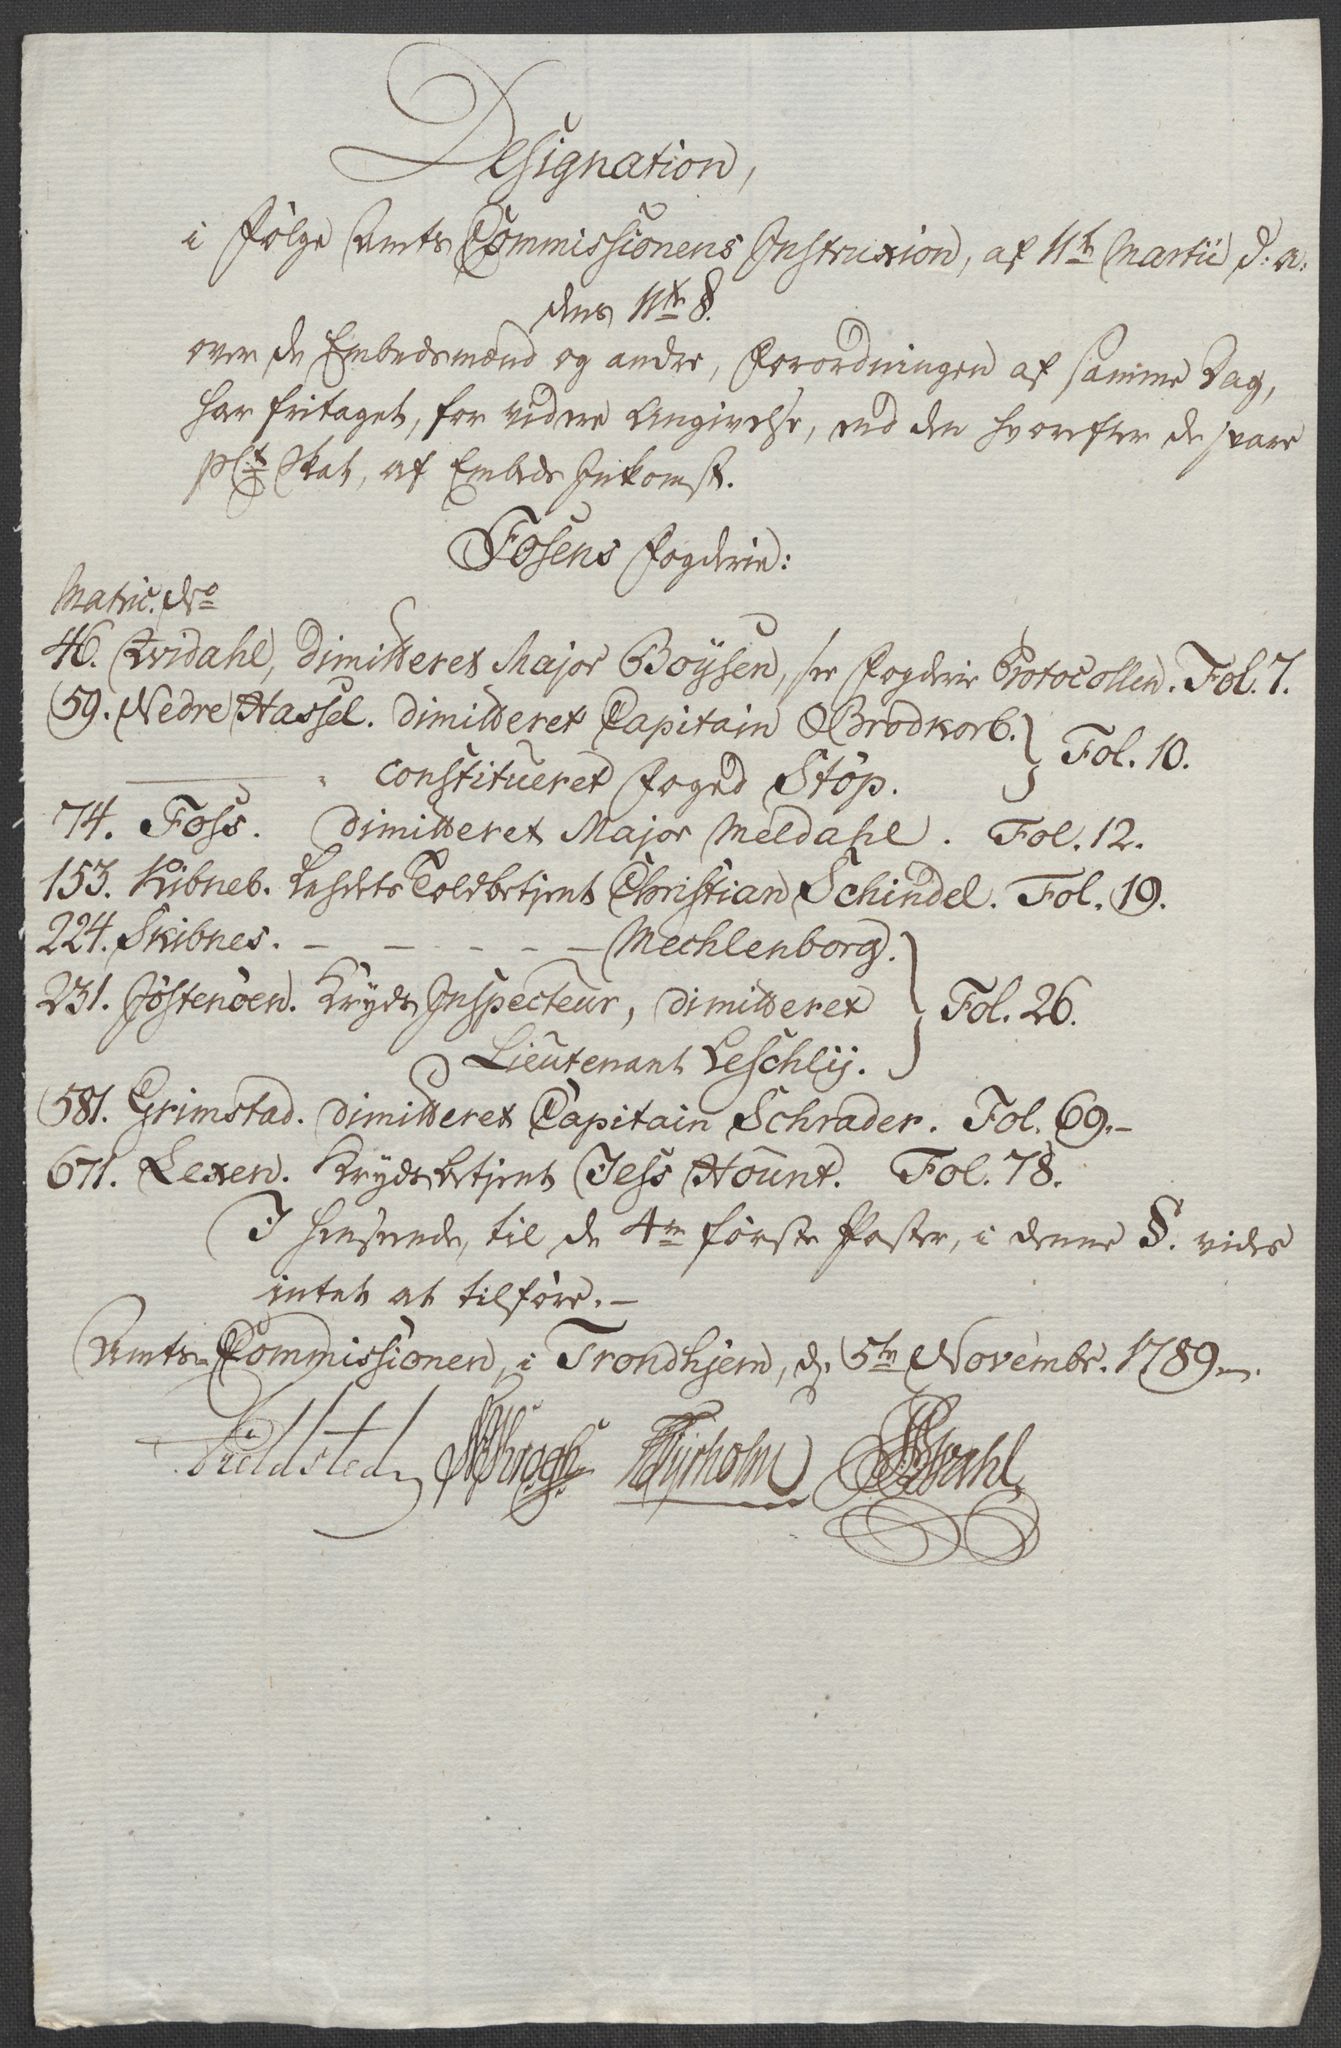 Designation,
i Følge Amts Commissionens Instruxion, af 11te Martii d: a:
dens 11te §.
over de Embedsmænd og andre, Forordningen af samme Dag,
har fritaget, for videre Angivelse, end den hvorefter de svare
pCt Skat, af Embeds Indkomst.
Fosens Fogderie:
Matric. No
46. Qvidahl, dimitteret Major Boÿsen, see Fogderie Protocollen. Fol. 7.
59. Nedre Hassel. dimitteret Capitain Brodkorb. } Fol. 10.
constitueret Foged Støp.
74. Foss. dimitteret Major Meldahl. Fol. 12.
153. Kibneb. Toldbetjent Christian Schindel. Fol. 19.
224. Skibnes. – – – – – – Mechlenborg.
231. Jøstenøen. Kryds Inspecteur, dimitteret } Fol. 26.
Lieutenant Leschlÿ.
581. Grimstad. dimitteret Capitain Schrader. Fol. 69.–
671. Lexen. Krydsbetjent Jess Hount. Fol. 78.
I Henseende, til de 4re første Poster, i denne §. vides
intet at tilføre.–
Amts-Commissionen, i Trondhjem, d. 5te Novembr. 1789.
Fieldsted Krogh Thyrholm Wahl